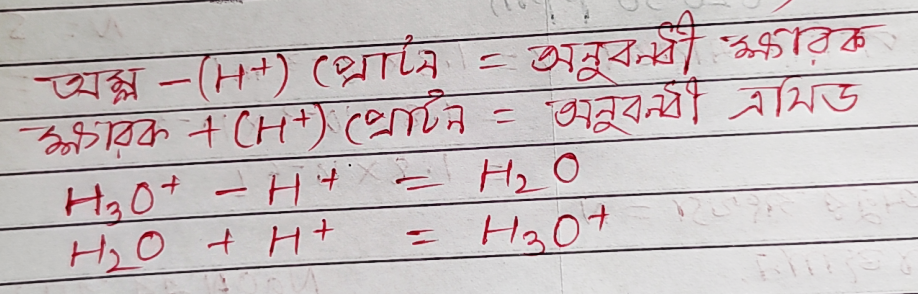 অম্ল - (H⁺) প্রোটন = অনুবন্ধী ক্ষারক
ক্ষারক + (H⁺) প্রোটন = অনুবন্ধী এসিড
H₃O⁺ - H⁺ = H₂O
H₂O + H⁺ = H₃O⁺